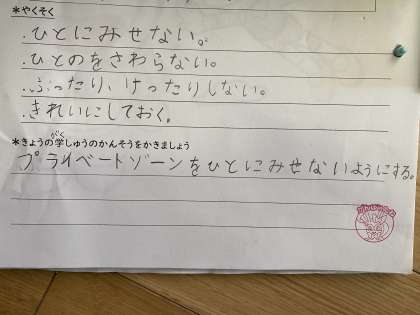 *やくそく
・ひとにみせない。
・ひとのをさわらない。
・ぶったり、けったりしない。
・きれいにしておく。
*きょうの学しゅうのかんそうをかきましょう
がく
プライベートゾーンをひとにみせないようにする。